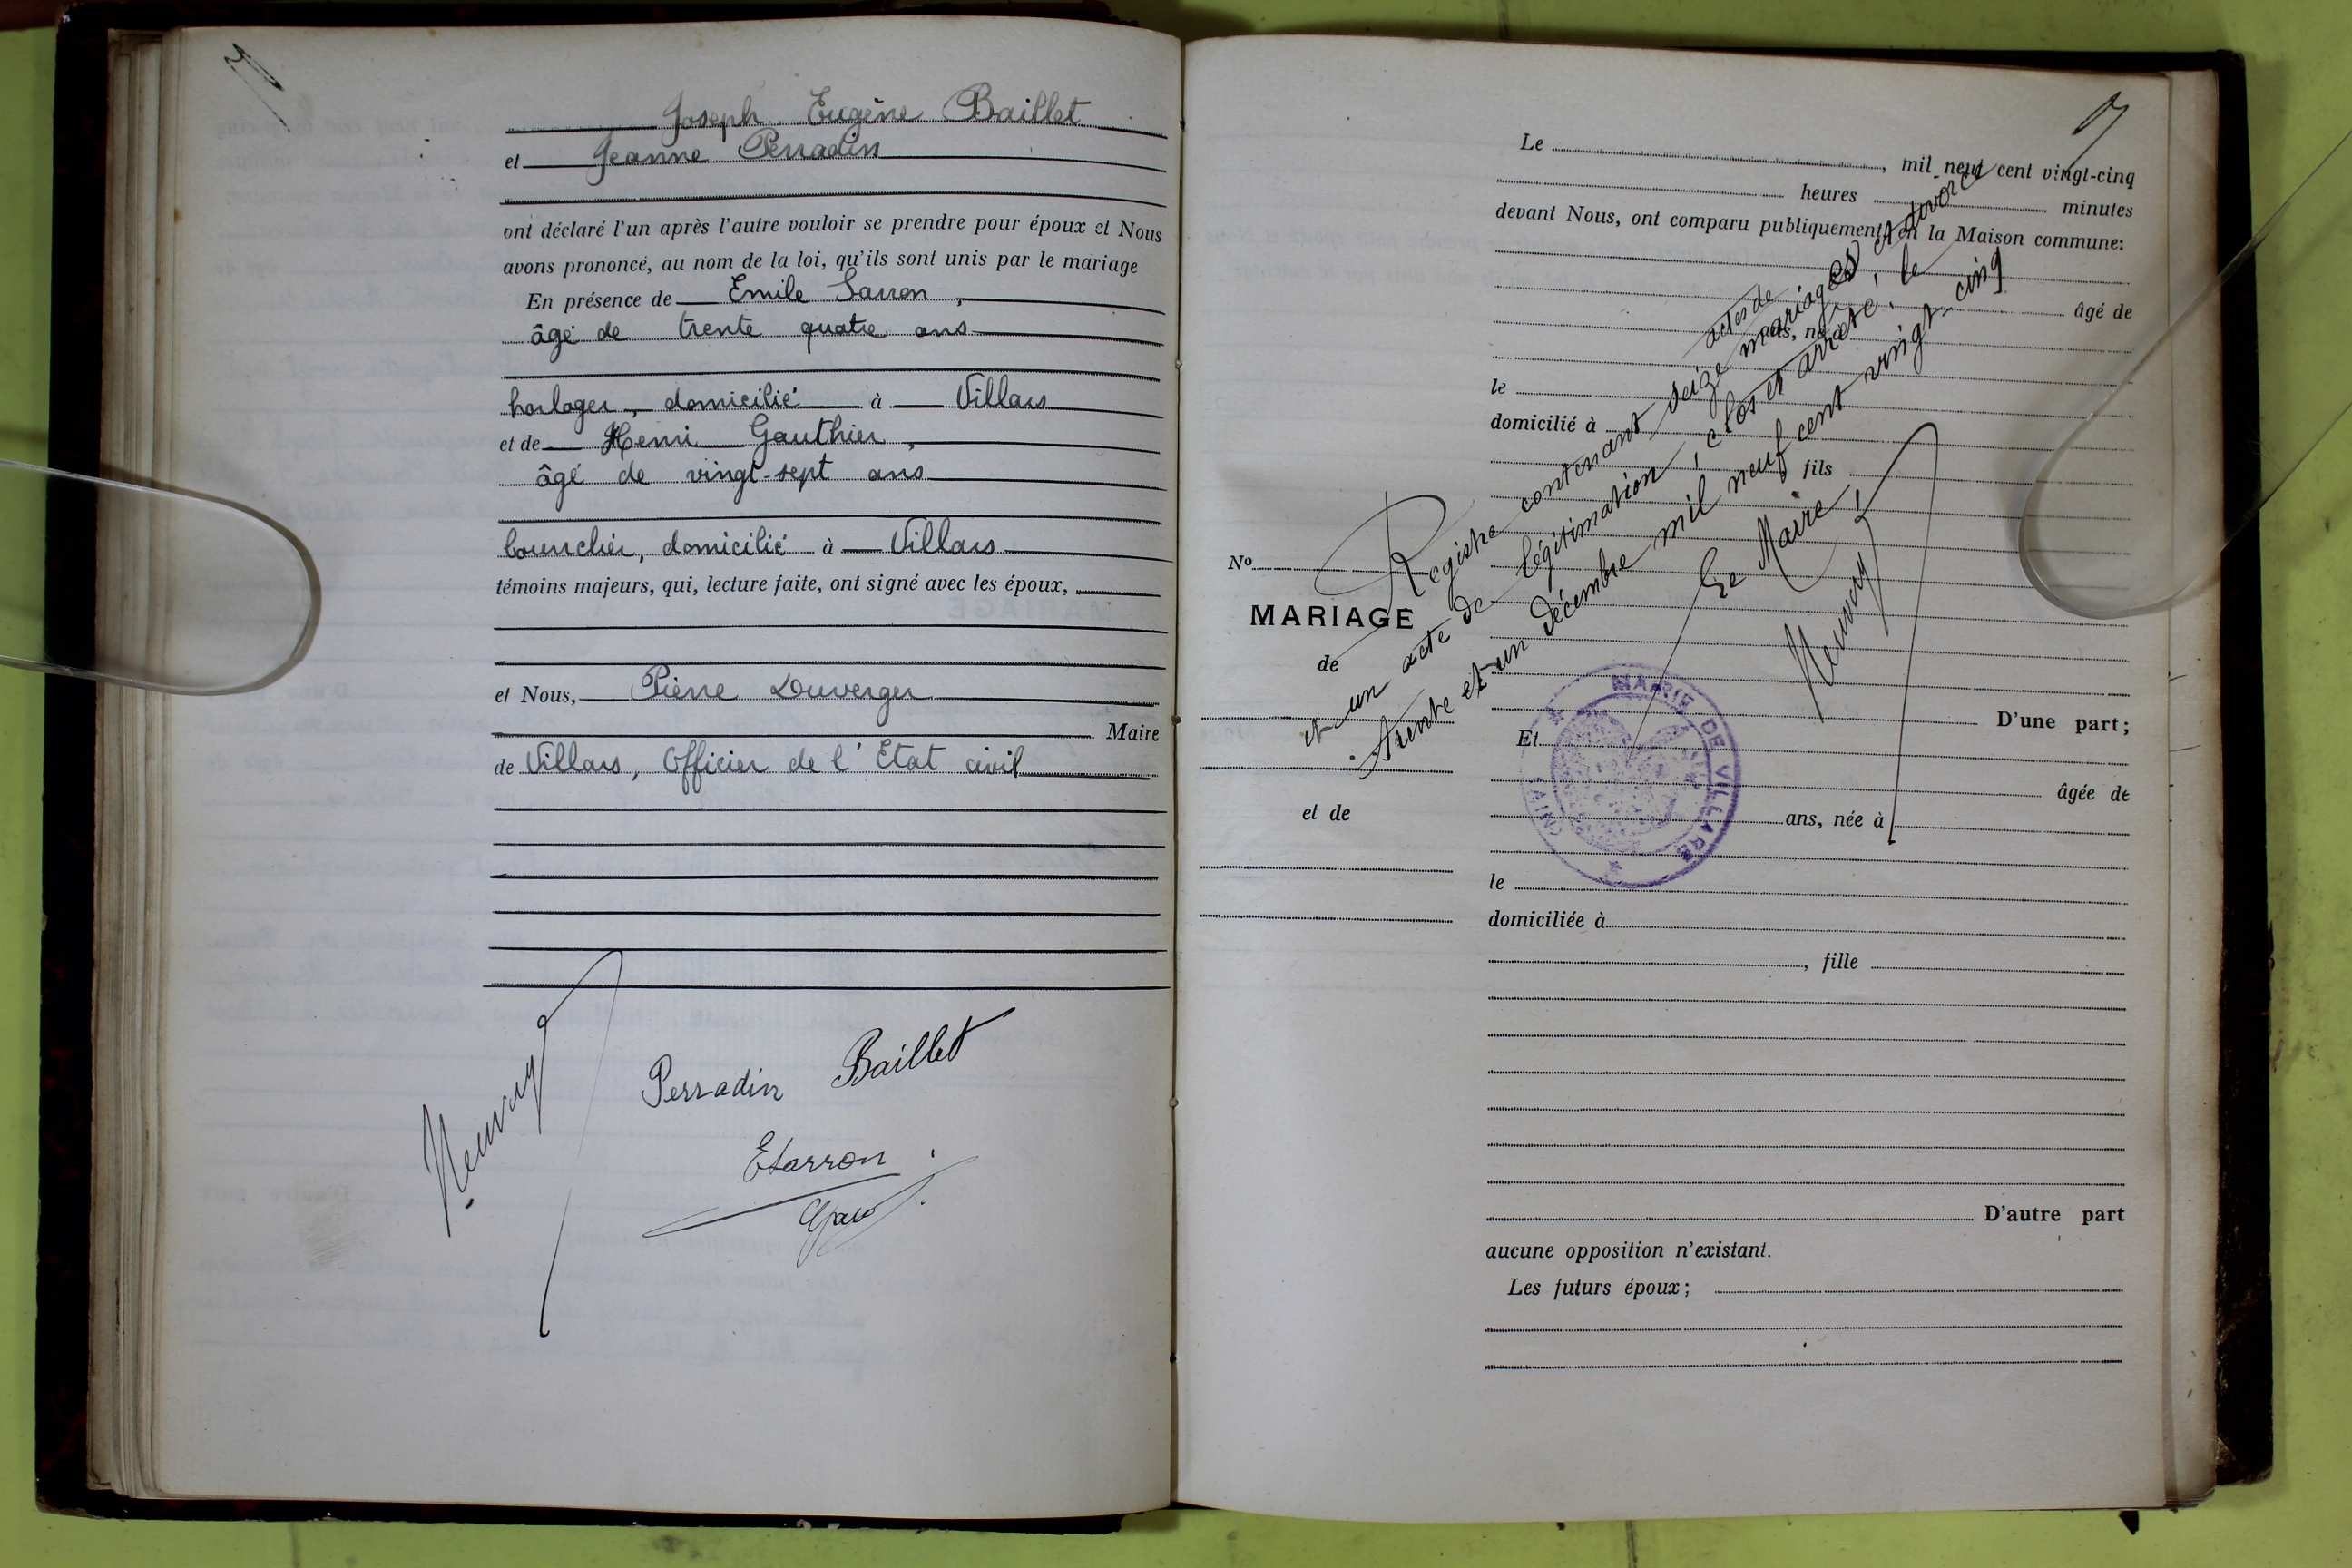 Joseph Eugène Baillet
et Jeanne Perradin
ont déclaré l'un après l'autre vouloir se prendre pour époux et Nous
avons prononcé, au nom de la loi, qu'ils sont unis par le mariage
En présence de Emile Sarron,
âgé de trente quatre ans
horloger, domicilié à Villars
et de Henri Gauthier,
âgé de vingt-sept ans
domicilié à Villars
témoins majeurs, qui, lecture faite, ont signé avec les époux,
et Nous, Pierre Duverger
Maire
de Villars, Officier de l'Etat civil
Perradin Baillet
Le , mil neuf cent vingt-cinq
heures minutes
devant Nous, ont comparu publiquement en la Maison commune:
âgé de
ans, né à
le
domicilié à
fils
No
MARIAGE
de
et de
Registre contenant seize actes de mariages et divorce
et un acte de légitimation, clos et arrêté, le
trente et un décembre mil neuf cent vingt cinq
Le Maire,
MAIRIE DE VILLARS
(AIN)
D'une part;
Et
âgée de
ans, née à
le
domiciliée à
, fille
D'autre part
aucune opposition n'existant.
Les futurs époux;